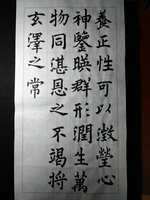 養正性可以澂瑩心
神鑒暎群形潤生萬
物同湛恩之不竭将
玄澤之常